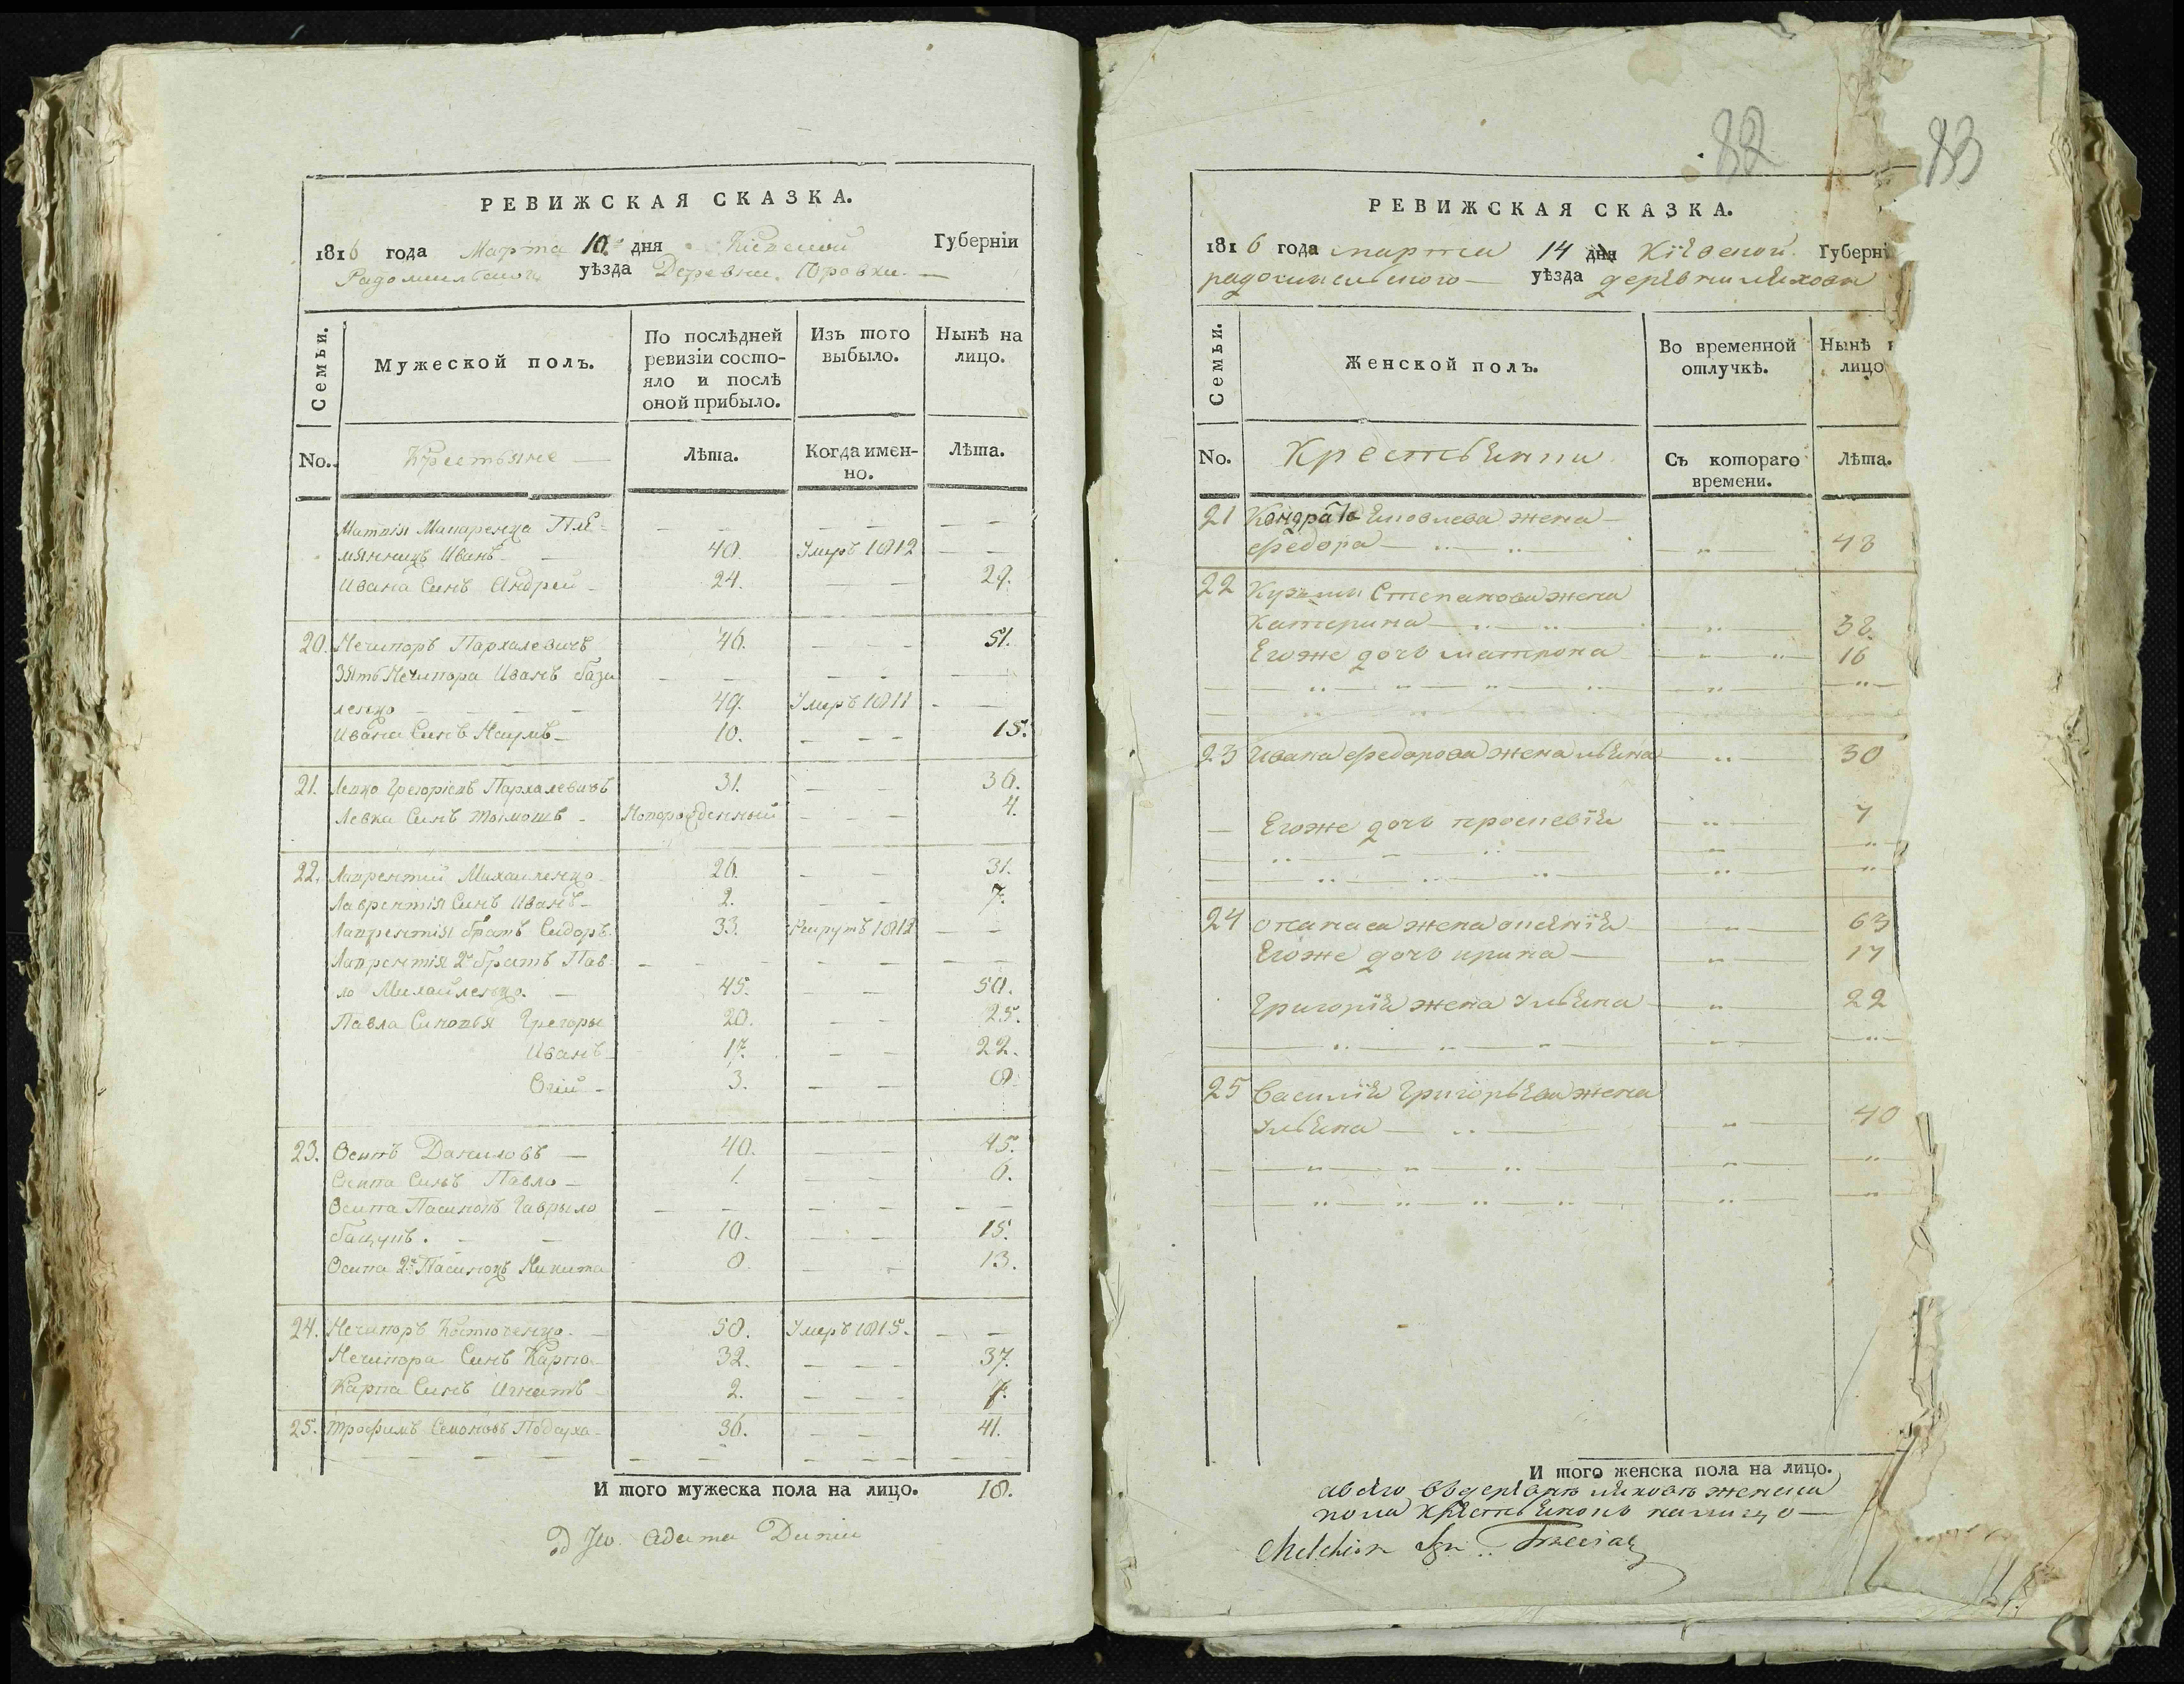 РЕВИЖСКАЯ СКАЗКА.
1816 года Марта 10. дня Кіевской Губерніи
Радомысльского уѣзда Деревни Юровки.
Семьи.
Мужеской полъ.
По послѣдней ревизіи состояло и послѣ оной прибыло.
Изъ того выбыло.
Нынѣ на лицо.
No.
Крестьяне
Лѣта.
Когда именно.
Лѣта.
Матвія Макаренка Пле-
мянникъ Иванъ 40. Умръ 1812
Ивана Синъ Андрей 24. 29.
20. Нечипоръ Пархалевичъ 46. 51.
Зять Нечипора Иванъ Бази
ленко 49. Умръ 1811
Ивана Синъ Наумъ 10. 15.
21. Левко Грегоріевъ Пархалевичъ 31. 36.
Левка Синъ Тоімошъ Новорожденный 4.
22. Лаврентий Михайленко 26. 31.
Лаврентія Синъ Иванъ 2. 7.
Лаврентія братъ Сидоръ 33. Рекрутъ 1812
Лаврентія 2й братъ Пав-
ло Михайленко. 45. 50.
Павла Синовья Грегоры 20. 25.
Иванъ 17. 22.
3. 8.
23. Осипъ Даниловъ 40. 45.
Осипа Синъ Павло 1. 6.
Осипа Пасинокъ Гаврыло
10. 15.
Осипа 2й Пасинокъ Никита 8. 13.
24. Нечипоръ Костюченко. 50. Умръ 1815.
Нечипора Синъ Карпо 32. 37.
Карпа Синъ Игнатъ 2. 7.
25. Трофимъ Семоновъ 36. 41.
И того мужеска пола на лицо. 18.
Адама
82
83
РЕВИЖСКАЯ СКАЗКА.
1816 года марта 14 дня Кіевской Губерні
радомысльского уѣзда деревни
Семьи.
Женской полъ.
Во временной отлучкѣ.
Нынѣ лицо
No.
Крестьянки
Съ котораго времени.
Лѣта.
21 Кондрата Яковлева жена
Федора 48
22 Кузьмы Степанова жена
Катерина 38.
Егоже дочь матрона 16
23 Ивана Федорова жена 30
Егоже дочь 7
24 жена 63
Егоже дочь ирина 17
Григорія жена Ульяна 22
25 Василія Григорьева жена
Ульяна 40
И того женска пола на лицо.
пола крестьянокъ налицо
Melchior